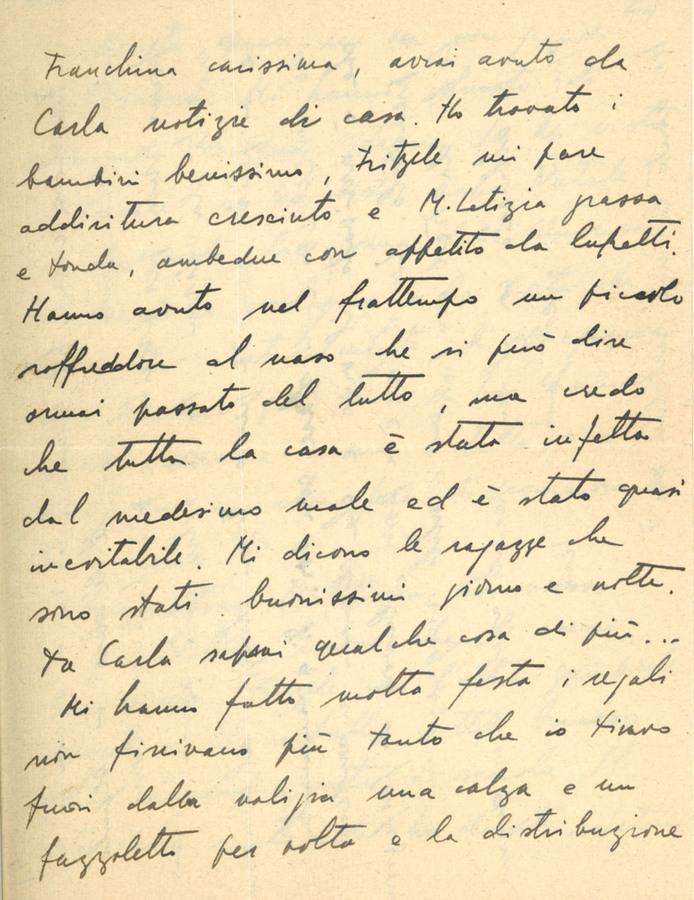 Franchina carissima, avrai avuto da
Carla notizie di casa. Ho trovato i
bambini benissimo, Fritzele mi pare
addiritura cresciuto e M. Letizia grassa
e tonda, ambedue con appetito da lupetti.
Hanno avuto nel frattempo un piccolo
raffreddore al naso che si può dire
ormai passato del tutto, ma credo
che tutta la casa è stata infetta
dal medesimo male ed è stato quasi
inevitabile. Mi dicono le ragazze che
sono stati buonissimi giorno e notte.
Da Carla saprai qualche cosa di più...
Mi hanno fatto molta festa i regali
non finivano più tanto che io tiravo
fuori dalla valigia una calza e un
fazzoletto per volta e la distribuzione